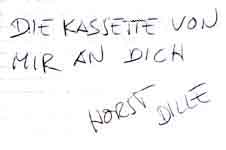 DIE KASSETTE VON
MIR AN DICH
HORST DILLE